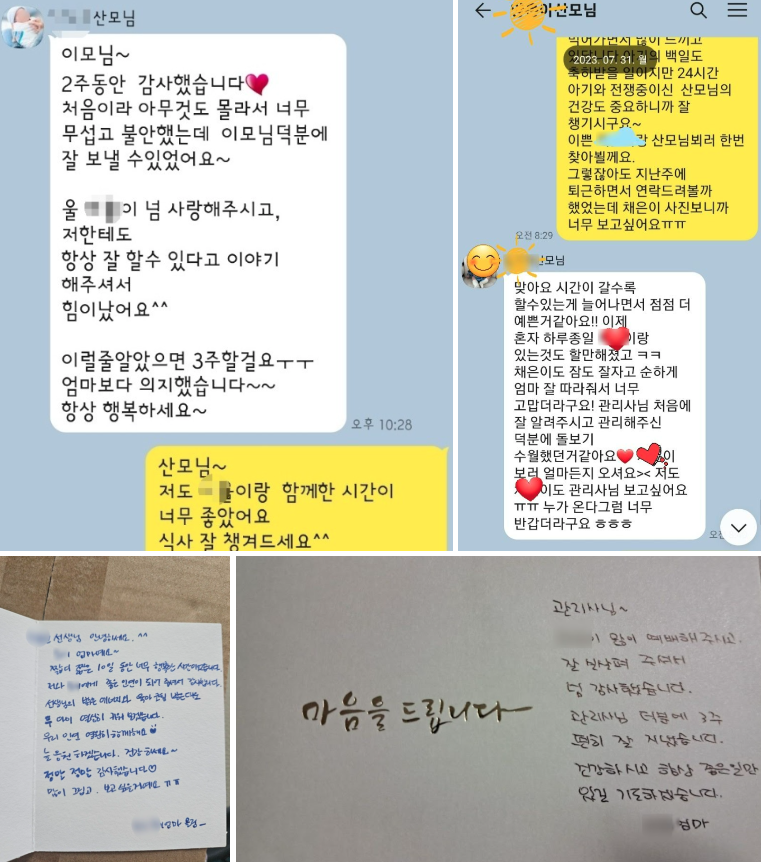 산모님
이모님~
2주동안 감사했습니다
처음이라 아무것도 몰라서 너무
무섭고 불안했는데 이모님덕분에
잘 보낼 수있었어요~
울 이 넘 사랑해주시고,
저한테도
항상 잘 할수 있다고 이야기
해주셔서
힘이났어요^^
이럴줄알았으면 3주할걸요ㅜㅜ
엄마보다 의지했습니다~~
항상 행복하세요~
오후 10:28
산모님~
저도 이랑 함께한 시간이
너무 좋았어요
식사 잘 챙겨드세요^^
산모님
먹어가면서 많이 느끼고
있답니다 백일도
2023. 07. 31. 월
축하받을 일이지만 24시간
아기와 전쟁중이신 산모님의
건강도 중요하니까 잘
챙기시구요~
이쁜 랑 산모님뵈러 한번
찾아뵐께요.
그렇잖아도 지난주에
퇴근하면서 연락드려볼까
했었는데 채은이 사진보니까
너무 보고싶어요ㅠㅠ
오전 8:29
산모님
맞아요 시간이 갈수록
할수있는게 늘어나면서 점점 더
예쁜거같아요!! 이제
혼자 하루종일 이랑
있는것도 할만해졌고 ㅋㅋ
채은이도 잠도 잘자고 순하게
엄마 잘 따라줘서 너무
고맙더라구요! 관리사님 처음에
잘 알려주시고 관리해주신
덕분에 돌보기
수월했던거같아요 이
보러 얼마든지 오셔요>< 저도
이도 관리사님 보고싶어요
ㅠㅠ 누가 온다그럼 너무
반갑더라구요 ㅎㅎㅎ
선생님 안녕하세요. ^^
엄마에요~
짧다면 짧은 10일 동안 너무 행복한 시간이었습니다.
저와 에게 좋은 인연이 되어 주셔서 감사합니다.
선생님의 밝은 에너지로
우리 인연 영원히 해요
늘 응원 하겠습니다. 건강 하세요~
정말 정말 감사했습니다♡
많이 그립고, 보고 싶을거에요 ㅠㅠ
엄마
마음을 드립니다
관리사님~
이 많이 예뻐해주시고.
잘 보살펴 주셔서
넘 감사했습니다.
관리사님 덕분에 3주
편히 잘 지냈습니다.
건강하시고 항상 좋은일만
있길 기도하겠습니다.
엄마